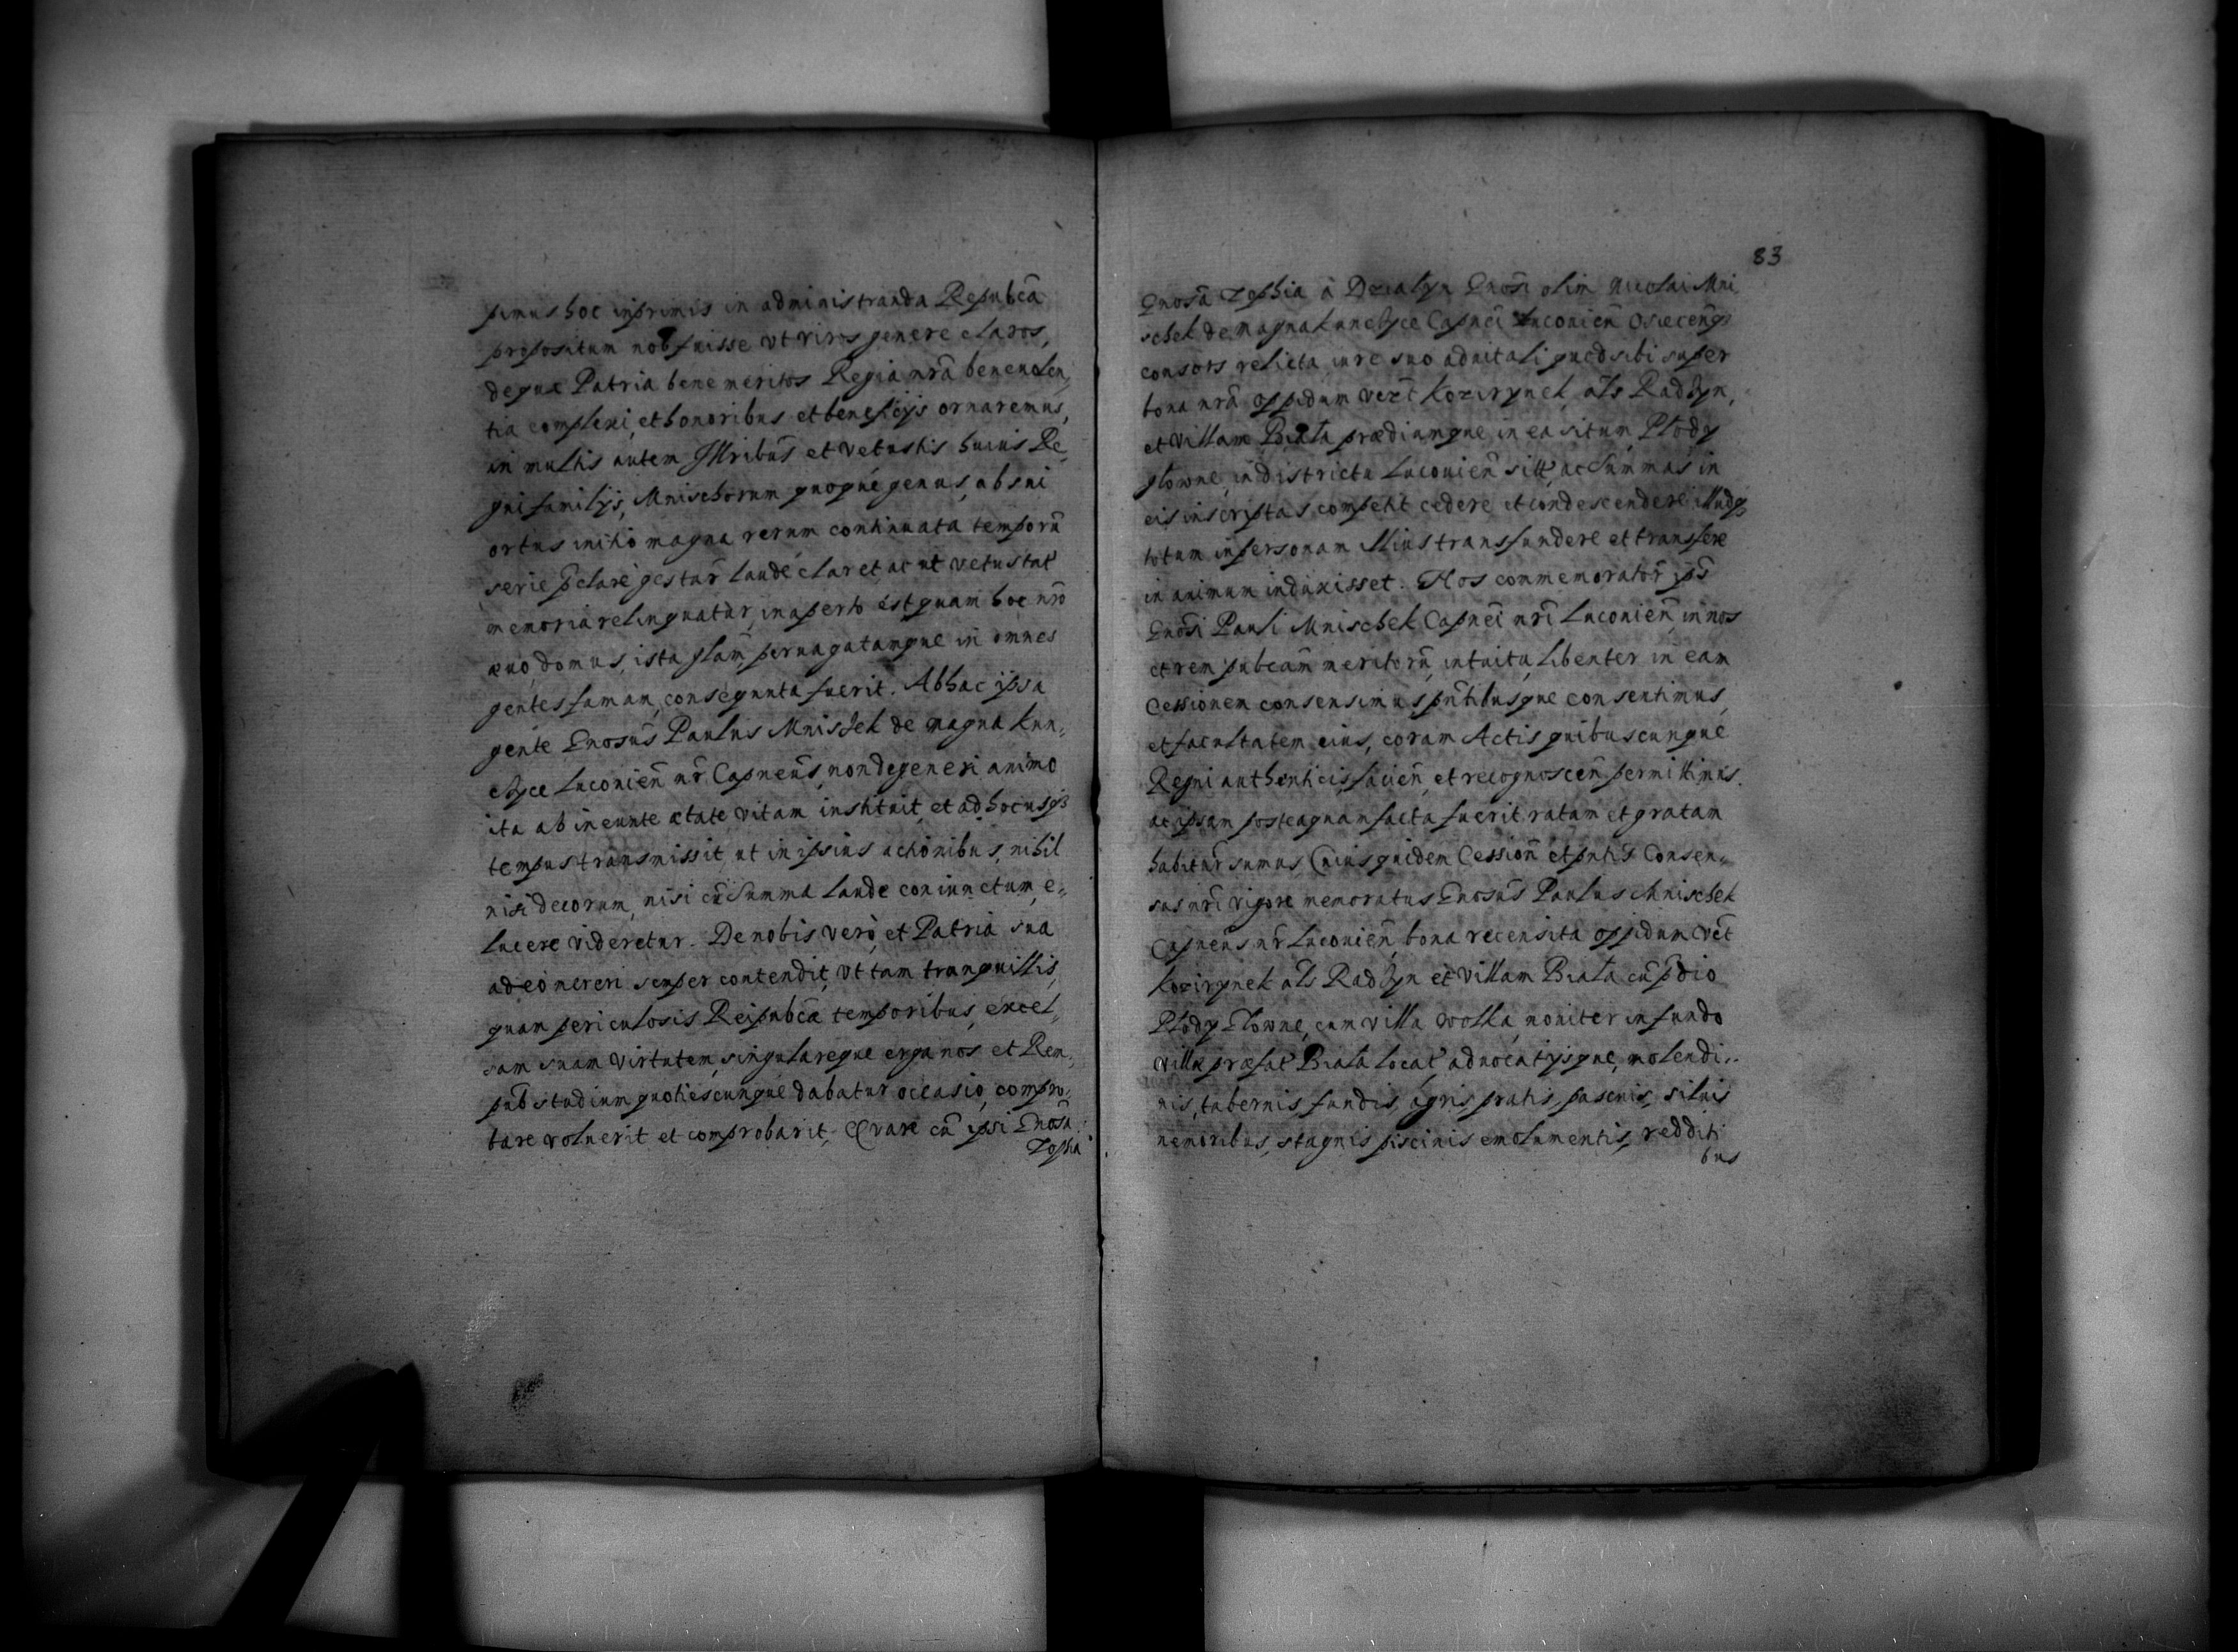 pimus hoc inprimis in administranda Repubcã
propositum nob fuisse vt viros genere claros,
deque Patria bene meritos Regia nrã beneuolen„
tia complexi, et honoribus et beneficÿs ornaremus,
in multis autem Illribus̃ et vetustis huius Re„
gni familÿs, Mnischorum quoque genus, ab sui
ortus initio magna rerum continuata temporũ
serie p̃clare gestar̃ laude claret, ac ut vetustat
memoria relinquatur, in aperto est quam hoc nrõ
æuo, domus, ista glam̃ peruagatamque in omnes
gentes famam, consequuta fuerit. Ab hac ipsa
gente Gnosus̃ Paulus Mnishek de magna Kun„
czyce Luconien̄ nr̃ Capneus̃, non degeneri animo
ita ab ineunte ætate vitam instituit, et ad hocusq3
tempus transmissit, ut in ipsius actionibus, nihil
nisi decorum, nisi cũ Summa laude coniunctum, e„
lucere videretur. De nobis vero, et Patria sua
adeò mereri semper contendit, vt tam tranquillis,
quam periculosis Reipubcæ̃ temporibus, excel„
sam suam virtutem, singulareque erga nos et Rem„
pub̃ studium quotiescunque dabatur occasio, compro„
bare voluerit et comprobarit. Qvare cũ ipsi Gnosã
Zophia
83
Gnosã Zophia à Dzialyn Gnosĩ olim Nicolai Mni
schek de magna Kunczyce Capnei̇̃ Luconien̄ Osiecenq3
consors relicta, iure suo aduitali quod sibi super
bona nrã oppidum vezt̃ Kozirynek, als̃ Radzyn,
et villam Biała prædiumque in ea situm, Płody
głowne, in districtu Luconien̄ sitt̃, ac Summas in
eis inscriptas competit cedere et condescendere, illudq3
totum in personam illius transfundere et transferre
in animum induxisset. Nos commemorator̃ ips̃
Gnosĩ Pauli Mnischek Capnei̇̃ nrĩ Luconien̄, in nos
et rem pubcam̃ meritorũ, intuitu, libenter in eam
Cessionem consensimus pñtibusque consentimus,
et facultatem eius, coram Actis quibuscunque
Regni authenticis, facien̄, et recognoscen̄ permittimus.
ac ipsam posteaquam facta fuerit, ratam et gratam
habitur̃ sumus Cuius quidem Cession̄ et pñtis̃ Consen„
sus nrĩ vigore memoratus Gnosus̃ Paulus Mnischek
Capneus̃ nr̃ Luconien̄, bona recensita oppidum vet̃
Kozirynek als̃ Radzyn et villam Biała cũ p̃dio
Płody Głowne, cum villa Wolka, nouiter in fundo
villæ præfat̃ Biała locat̃, aduocatÿsque, molendi„
nis, tabernis, fundis, agris, pratis, pascuis, siluis
nemoribus, stagnis piscinis emolumentis, redditi
bus